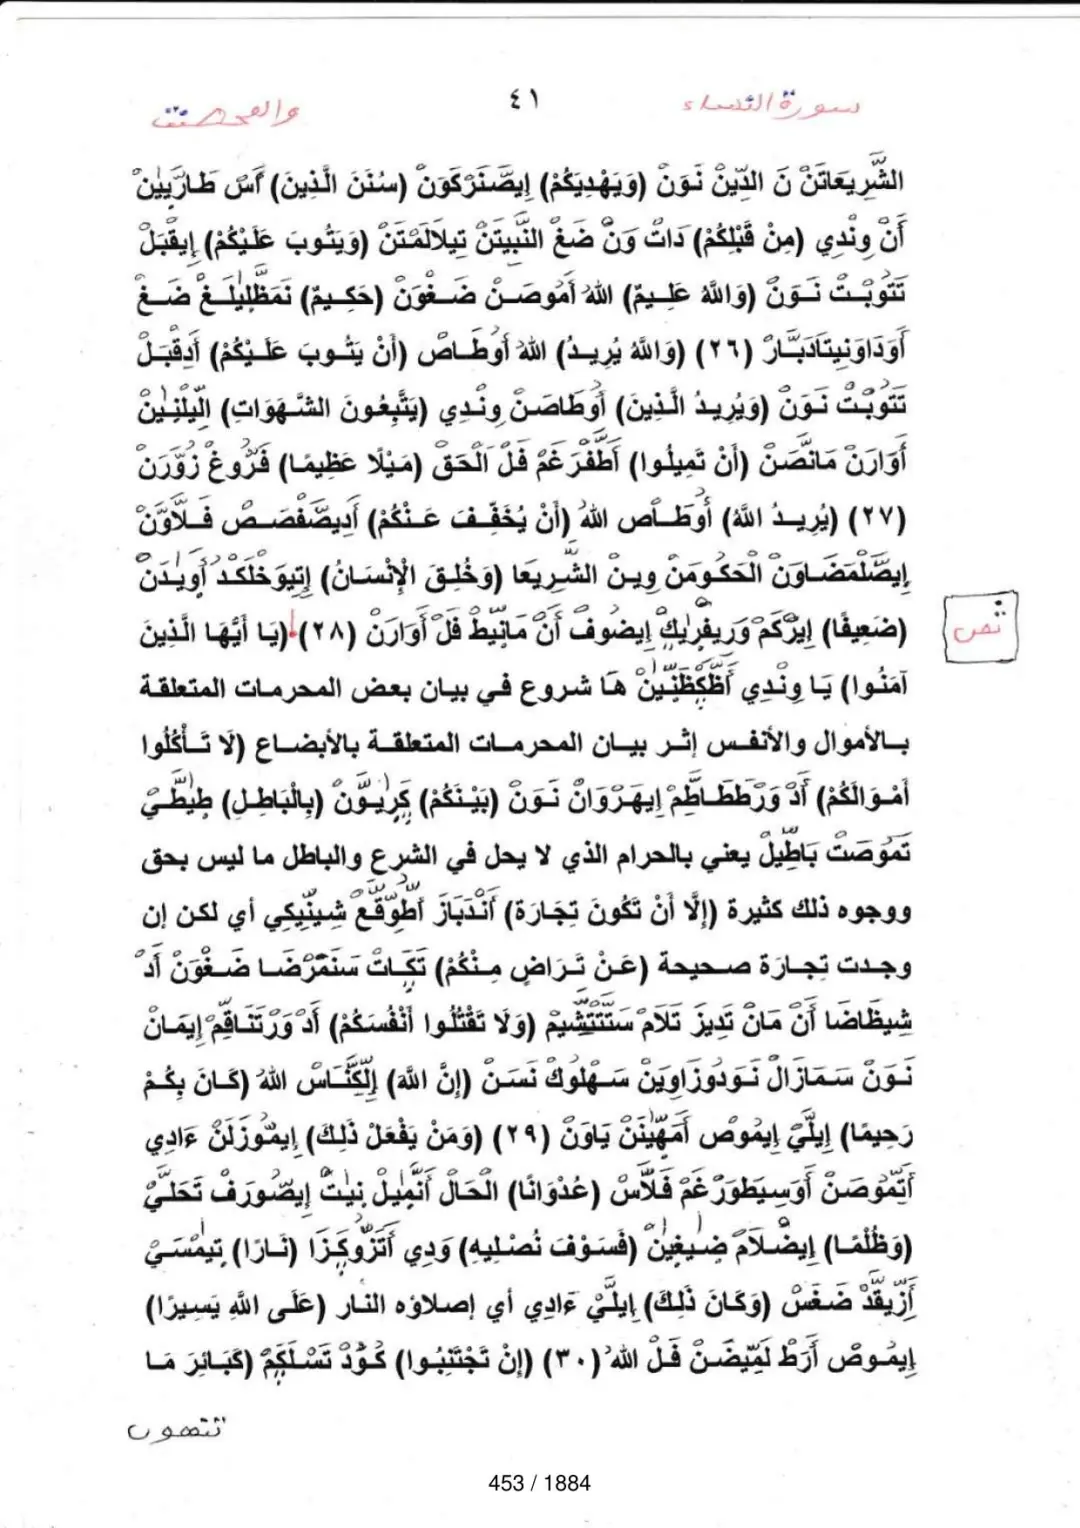 سورة النساء
٤١
والمحصنت
الشَّرِيعَاتَنْ نَ الدِّينْ نَوَنْ (وَيَهْدِيَكُمْ) إِيصَنَرْكَوَنْ (سُنَنَ الَّذِينَ) أَسْ طَارَيِينْ
أَنْ وِنْدِي (مِنْ قَبْلِكُمْ) دَاتْ وَنْ ضَغْ النَّبِيتَنْ تِيلَالَمْتَنْ (وَيَتُوبَ عَلَيْكُمْ) إِيقْبَلْ
تَتُوبْتْ نَوَنْ (وَاللَّهُ عَلِيمٌ) اللهُ أَمُوصَنْ ضَغْوَنْ (حَكِيمٌ) نَمَظْلِيلَغْ ضَغْ
أَوَدَاوَنِيتَادَبَّارْ (٢٦) (وَاللَّهُ يُرِيدُ) اللهُ أُوطَاصْ (أَنْ يَتُوبَ عَلَيْكُمْ) أَدِقْبَلْ
تَتُوبْتْ نَوَنْ (وَيُرِيدُ الَّذِينَ) أُوطَاصَنْ وِنْدِي (يَتَّبِعُونَ الشَّهَوَاتِ) الِّيلْنِينْ
أَوَارَنْ مَانَصَنْ (أَنْ تَمِيلُوا) أَطَّفْرَغَمْ فَلْ الْحَقْ (مَيْلًا عَظِيمًا) فَرُوغْ زُوَّرَنْ
(٢٧) (يُرِيدُ اللَّهُ) أُوطَاصْ اللهُ (أَنْ يُخَفِّفَ عَنْكُمْ) أَدِيصَّفْصَصْ فَلَّاوَنْ
إِيصَلْمَضَاوَنْ الْحَكُومَنْ وِينْ الشَّرِيعَا (وَخُلِقَ الْإِنْسَانُ) إِتِيوَخْلَكَدْ أَوِيدَنْ
(ضَعِيفًا) إِيرْكَمْ وَرِيفْرِيكْ إِيضُوفْ أَنْ مَانِيطْ فَلْ أَوَارَنْ (٢٨) (يَا أَيُّهَا الَّذِينَ
ثمن
آمَنُوا) يَا وِنْدِي أَظَّكَظَنِينْ هَا شروع في بيان بعض المحرمات المتعلقة
بالأموال والأنفس إثر بيان المحرمات المتعلقة بالأبضاع (لَا تَأْكُلُوا
أَمْوَالَكُمْ) أَدْ وَرْطَطَاطَمْ إِيهَرْوَانْ نَوَنْ (بَيْنَكُمْ) كَرِيوَنْ (بِالْبَاطِلِ) طِيطِّيْ
تَمُوصَتْ بَاطِيلْ يعني بالحرام الذي لا يحل في الشرع والباطل ما ليس بحق
ووجوه ذلك كثيرة (إِلَّا أَنْ تَكُونَ تِجَارَة) أَنْدَبَازْ أَطُوقَّعْ شِينَيكِي أي لكن إن
وجدت تجارة صحيحة (عَنْ تَرَاضٍ مِنْكُمْ) تَكَاتْ سَنَمَرْضَا ضَغْوَنْ أَدْ
شِيظَاضَا أَنْ مَانْ تَدِيزْ تَلَامْ سَتَّتْشِيمْ (وَلَا تَقْتُلُوا أَنْفُسَكُمْ) أَدْ وَرْتَنَاقَمْ إِيمَانْ
نَوَنْ سَمَازَالْ نَوَدُوزَاوِينْ سَهْلُوكْ نَسَنْ (إِنَّ اللَّهَ) إِلْكَنَاسْ اللهُ (كَانَ بِكُمْ
رَحِيمًا) إِيلَيْ إِيمُوصْ أَمَهِينَنْ يَاوَنْ (٢٩) (وَمَنْ يَفْعَلْ ذَلِكَ) إِيمُوزَلَنْ ءَادِي
أَتِمُوصَنْ أَوَسِيطُورَغَمْ فَلَّاسْ (عُدْوَانًا) الْحَالْ أَنْمِيلْ نِيتْ إِيصُورَفْ تَحَلَيْ
(وَظُلْمًا) إِيضْلَامْ ضِيغِينْ (فَسَوْفَ نُصْلِيهِ) وَدِي أَتَزُّوكَزَا (نَارًا) تِيمْسَيْ
أَزِيقَدْ ضَغَسْ (وَكَانَ ذَلِكَ) إِيلَيْ ءَادِي أي إصلاؤه النار (عَلَى اللَّهِ يَسِيرًا)
إِيمُوصْ أَرَطْ لَمِيضَنْ فَلْ اللهْ (٣٠) (إِنْ تَجْتَنِبُوا) كُودْ تَسْلَكَمْ (كَبَائِرَ مَا
تنهون
453 / 1884